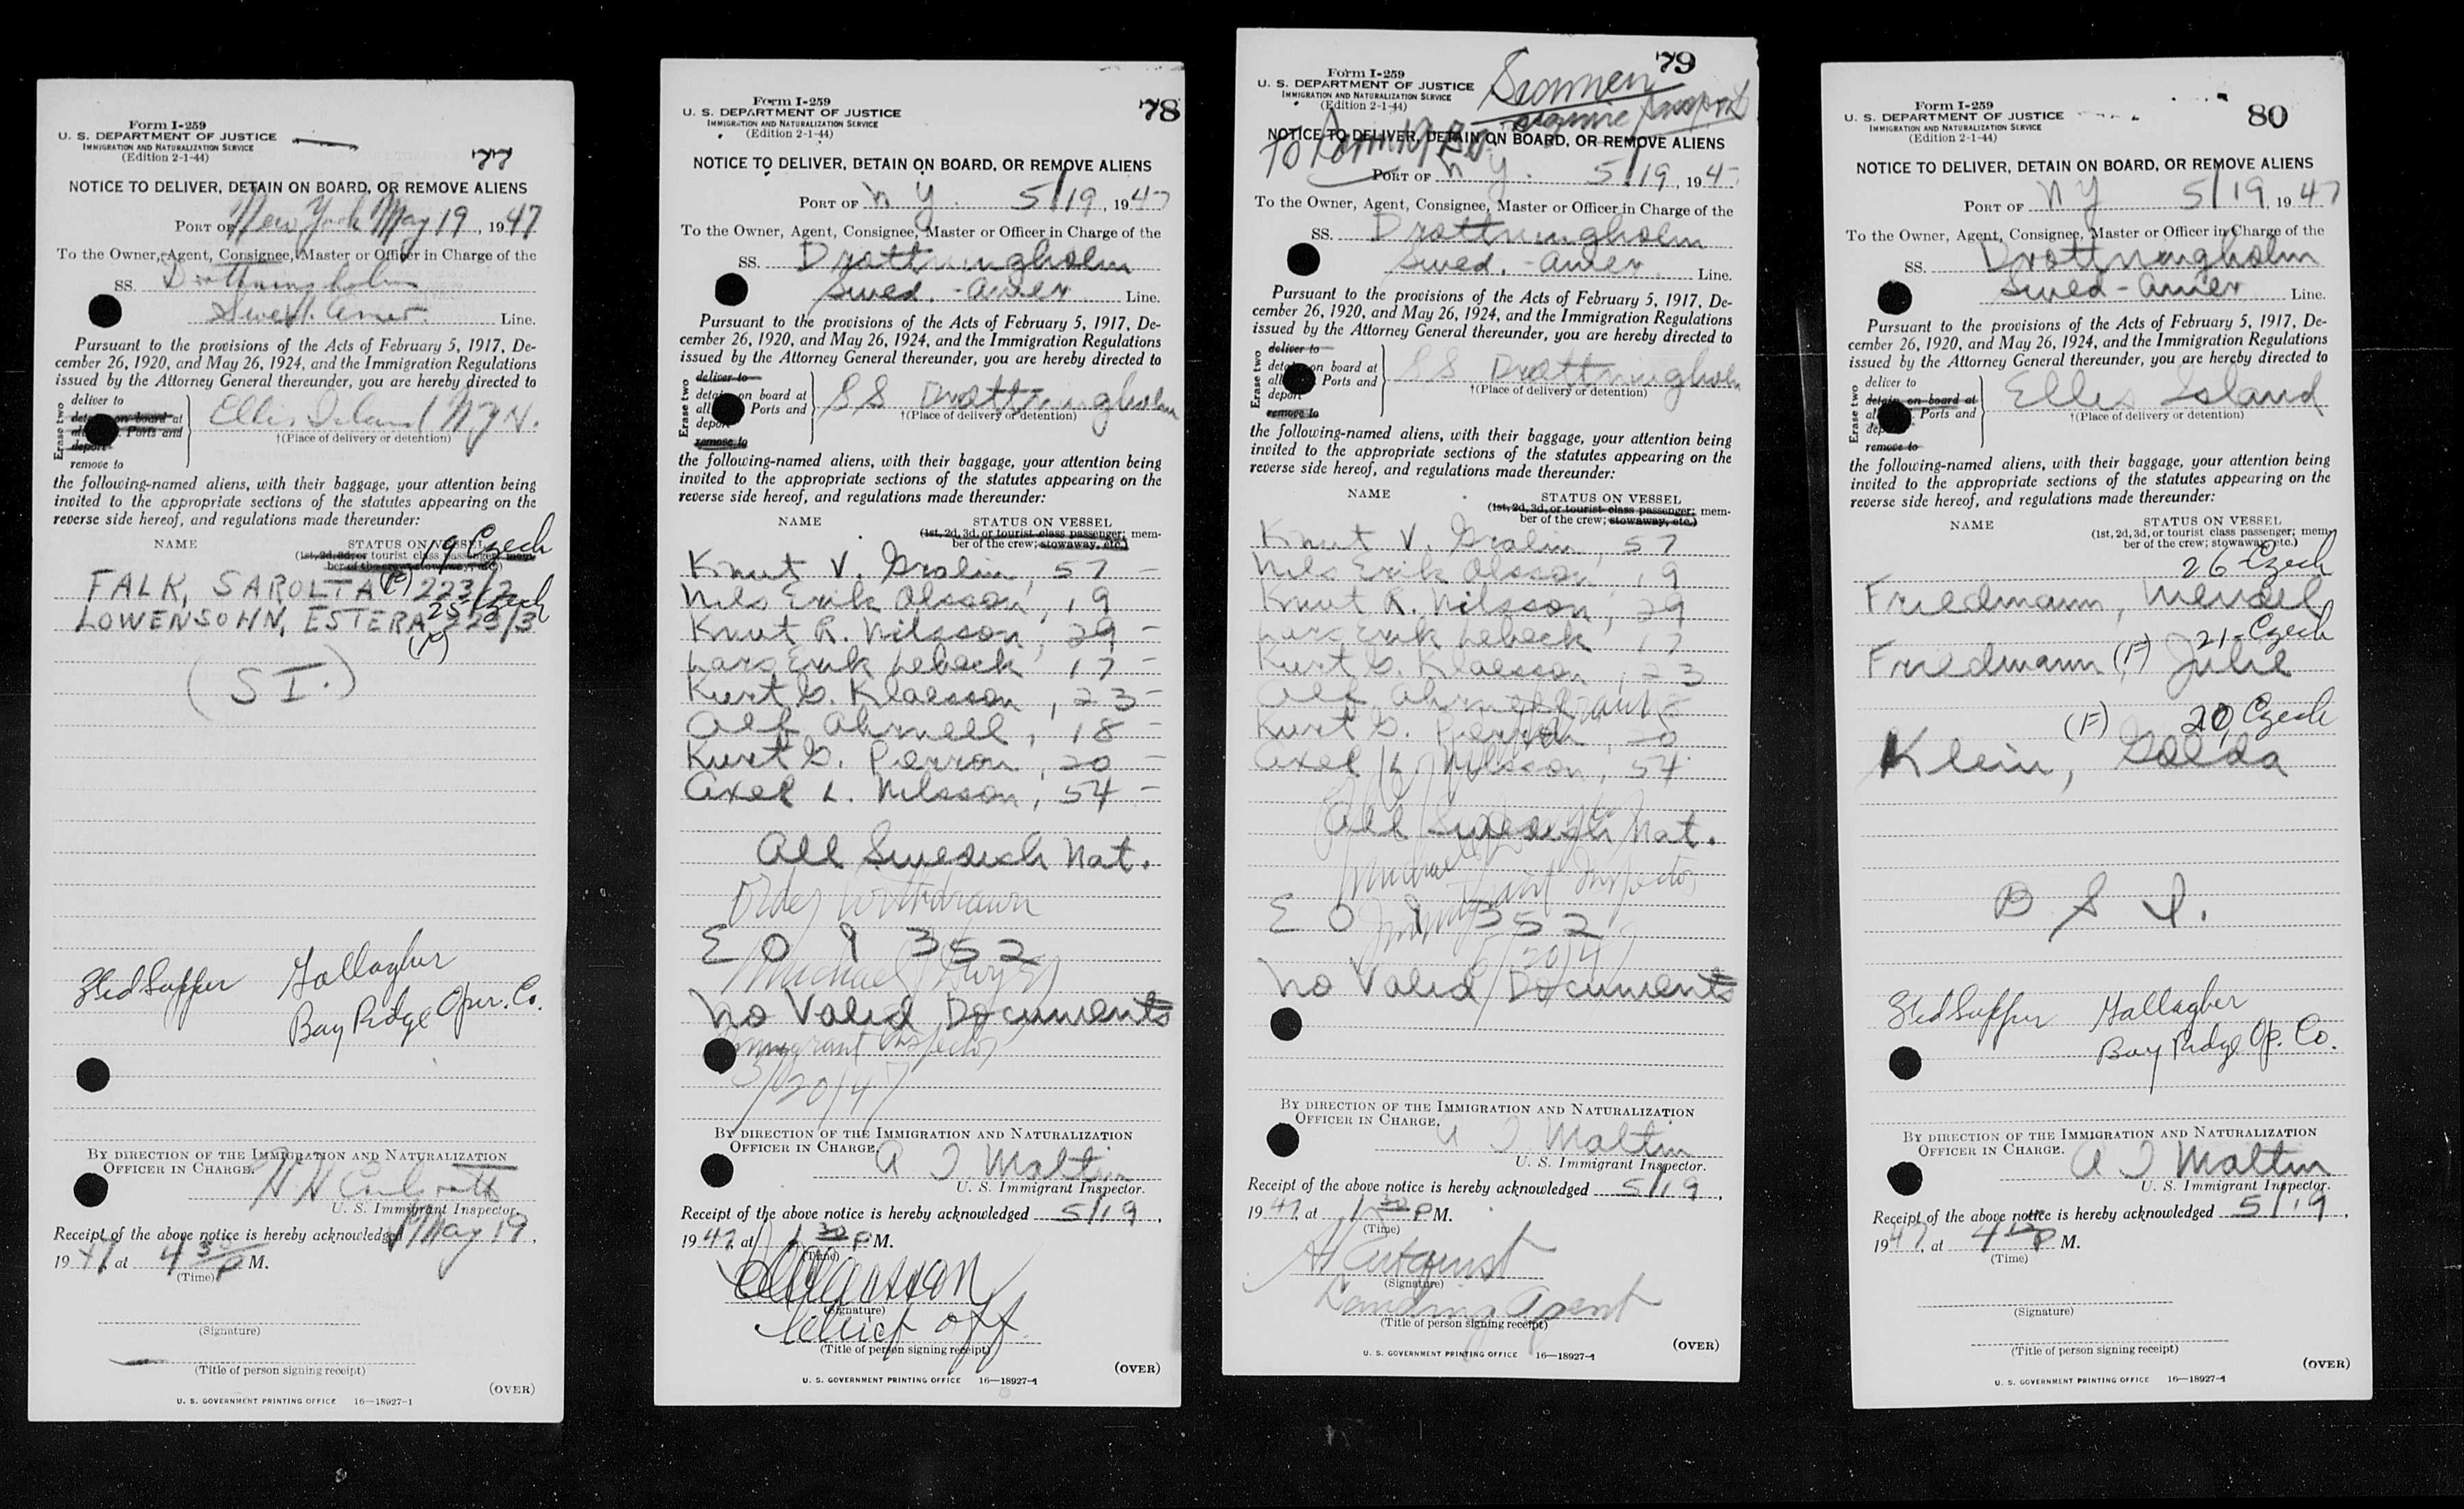 Form I-259
U. S. DEPARTMENT OF JUSTICE
IMMIGRATION AND NATURALIZATION SERVICE
(Edition 2-1-44)
77
NOTICE TO DELIVER, DETAIN ON BOARD, OR REMOVE ALIENS
PORT OF New York May 19, 1947
To the Owner, Agent, Consignee, Master or Officer in Charge of the
SS. Drottningholm
Swed. Amer. Line.
Pursuant to the provisions of the Acts of February 5, 1917, De-
cember 26, 1920, and May 26, 1924, and the Immigration Regulations
issued by the Attorney General thereunder, you are hereby directed to
Erase two
deliver to
detain on board at
Ports and
deport
remove to
Ellis Island N.Y.H.
†(Place of delivery or detention)
the following-named aliens, with their baggage, your attention being
invited to the appropriate sections of the statutes appearing on the
reverse side hereof, and regulations made thereunder:
NAME STATUS ON VESSEL
(1st, 2d, 3d, or tourist class passenger; mem-
ber of the crew; stowaway, etc.)
19 Czech
FALK, SAROLTA (F) 223/2
25 Czech
LOWENSOHN, ESTERA 223/3
(S I.)
Gallagher
Bay Ridge Oper. Co.
BY DIRECTION OF THE IMMIGRATION AND NATURALIZATION
OFFICER IN CHARGE.
U. S. Immigrant Inspector.
Receipt of the above notice is hereby acknowledged May 19,
1947, at 4 30 P M.
(Time)
(Signature)
(Title of person signing receipt)
(OVER)
U. S. GOVERNMENT PRINTING OFFICE 16—18927-1
Form I-259
U. S. DEPARTMENT OF JUSTICE
IMMIGRATION AND NATURALIZATION SERVICE
(Edition 2-1-44)
78
NOTICE TO DELIVER, DETAIN ON BOARD, OR REMOVE ALIENS
PORT OF N Y. 5/19, 1947
To the Owner, Agent, Consignee, Master or Officer in Charge of the
SS. Drottningholm
Swed. - Amer Line.
Pursuant to the provisions of the Acts of February 5, 1917, De-
cember 26, 1920, and May 26, 1924, and the Immigration Regulations
issued by the Attorney General thereunder, you are hereby directed to
Erase two
deliver to
detain on board at
all Ports and
deport
remove to
SS Drottningholm
†(Place of delivery or detention)
the following-named aliens, with their baggage, your attention being
invited to the appropriate sections of the statutes appearing on the
reverse side hereof, and regulations made thereunder:
NAME STATUS ON VESSEL
(1st, 2d, 3d, or tourist class passenger; mem-
ber of the crew; stowaway, etc.)
Knut V. Gralin, 57 -
Nils Erik Olsson, 19
Knut R. Nilsson, 29 -
Lars Erik Leback 17 -
Kurt G. Klaesson, 23 -
Alf Ahrnell, 18 -
Kurt G. Persson, 20 -
Axel L. Nilsson, 54 -
All Swedish Nat.
Order Withdrawn
E O 9 352
Michael Dwyer
No Valid Documents
Immigrant Inspector
5/20/47
BY DIRECTION OF THE IMMIGRATION AND NATURALIZATION
OFFICER IN CHARGE.
A I Maltin
U. S. Immigrant Inspector.
Receipt of the above notice is hereby acknowledged 5/19,
1947, at 1 30 P M.
(Time)
(Signature)
Chief off.
(Title of person signing receipt)
(OVER)
U. S. GOVERNMENT PRINTING OFFICE 16—18927-1
Form I-259
U. S. DEPARTMENT OF JUSTICE
IMMIGRATION AND NATURALIZATION SERVICE
(Edition 2-1-44)
79
Seamen
NOTICE TO DELIVER, DETAIN ON BOARD, OR REMOVE ALIENS
PORT OF N Y. 5/19, 194
To the Owner, Agent, Consignee, Master or Officer in Charge of the
SS. Drottningholm
Swed. - Amer. Line.
Pursuant to the provisions of the Acts of February 5, 1917, De-
cember 26, 1920, and May 26, 1924, and the Immigration Regulations
issued by the Attorney General thereunder, you are hereby directed to
Erase two
deliver to
detain on board at
all Ports and
deport
remove to
SS Drottningholm
†(Place of delivery or detention)
the following-named aliens, with their baggage, your attention being
invited to the appropriate sections of the statutes appearing on the
reverse side hereof, and regulations made thereunder:
NAME STATUS ON VESSEL
(1st, 2d, 3d, or tourist class passenger; mem-
ber of the crew; stowaway, etc.)
Knut V. Gralin, 57
Nils Erik Olsson, 19
Knut R. Nilsson, 29
Lars Erik Leback 17
Kurt G. Klaesson, 23
Alf Ahrnell
Kurt G. Persson, 20
Axel L. Nilsson, 54
All Swedish Nat.
Immigrant Inspector
E O 9 352
No Valid Documents
BY DIRECTION OF THE IMMIGRATION AND NATURALIZATION
OFFICER IN CHARGE.
A I Maltin
U. S. Immigrant Inspector.
Receipt of the above notice is hereby acknowledged 5/19,
1947, at 1 30 P M.
(Time)
(Signature)
Landing Agent
(Title of person signing receipt)
(OVER)
U. S. GOVERNMENT PRINTING OFFICE 16—18927-1
Form I-259
U. S. DEPARTMENT OF JUSTICE
IMMIGRATION AND NATURALIZATION SERVICE
(Edition 2-1-44)
80
NOTICE TO DELIVER, DETAIN ON BOARD, OR REMOVE ALIENS
PORT OF N Y 5/19, 1947
To the Owner, Agent, Consignee, Master or Officer in Charge of the
SS. Drottningholm
Swed - Amer Line.
Pursuant to the provisions of the Acts of February 5, 1917, De-
cember 26, 1920, and May 26, 1924, and the Immigration Regulations
issued by the Attorney General thereunder, you are hereby directed to
Erase two
deliver to
detain on board at
Ports and
remove to
Ellis Island
†(Place of delivery or detention)
the following-named aliens, with their baggage, your attention being
invited to the appropriate sections of the statutes appearing on the
reverse side hereof, and regulations made thereunder:
NAME STATUS ON VESSEL
(1st, 2d, 3d, or tourist class passenger; mem-
ber of the crew; stowaway, etc.)
26 Czech
Friedmann, Mendel
21-Czech
Friedmann, (F) Julie
(F) 20, Czech
Klein, Golda
B S I.
Gallagher
Bay Ridge Op. Co.
BY DIRECTION OF THE IMMIGRATION AND NATURALIZATION
OFFICER IN CHARGE.
A I Maltin
U. S. Immigrant Inspector.
Receipt of the above notice is hereby acknowledged 5/19,
1947, at 4 P M.
(Time)
(Signature)
(Title of person signing receipt)
(OVER)
U. S. GOVERNMENT PRINTING OFFICE 16—18927-1